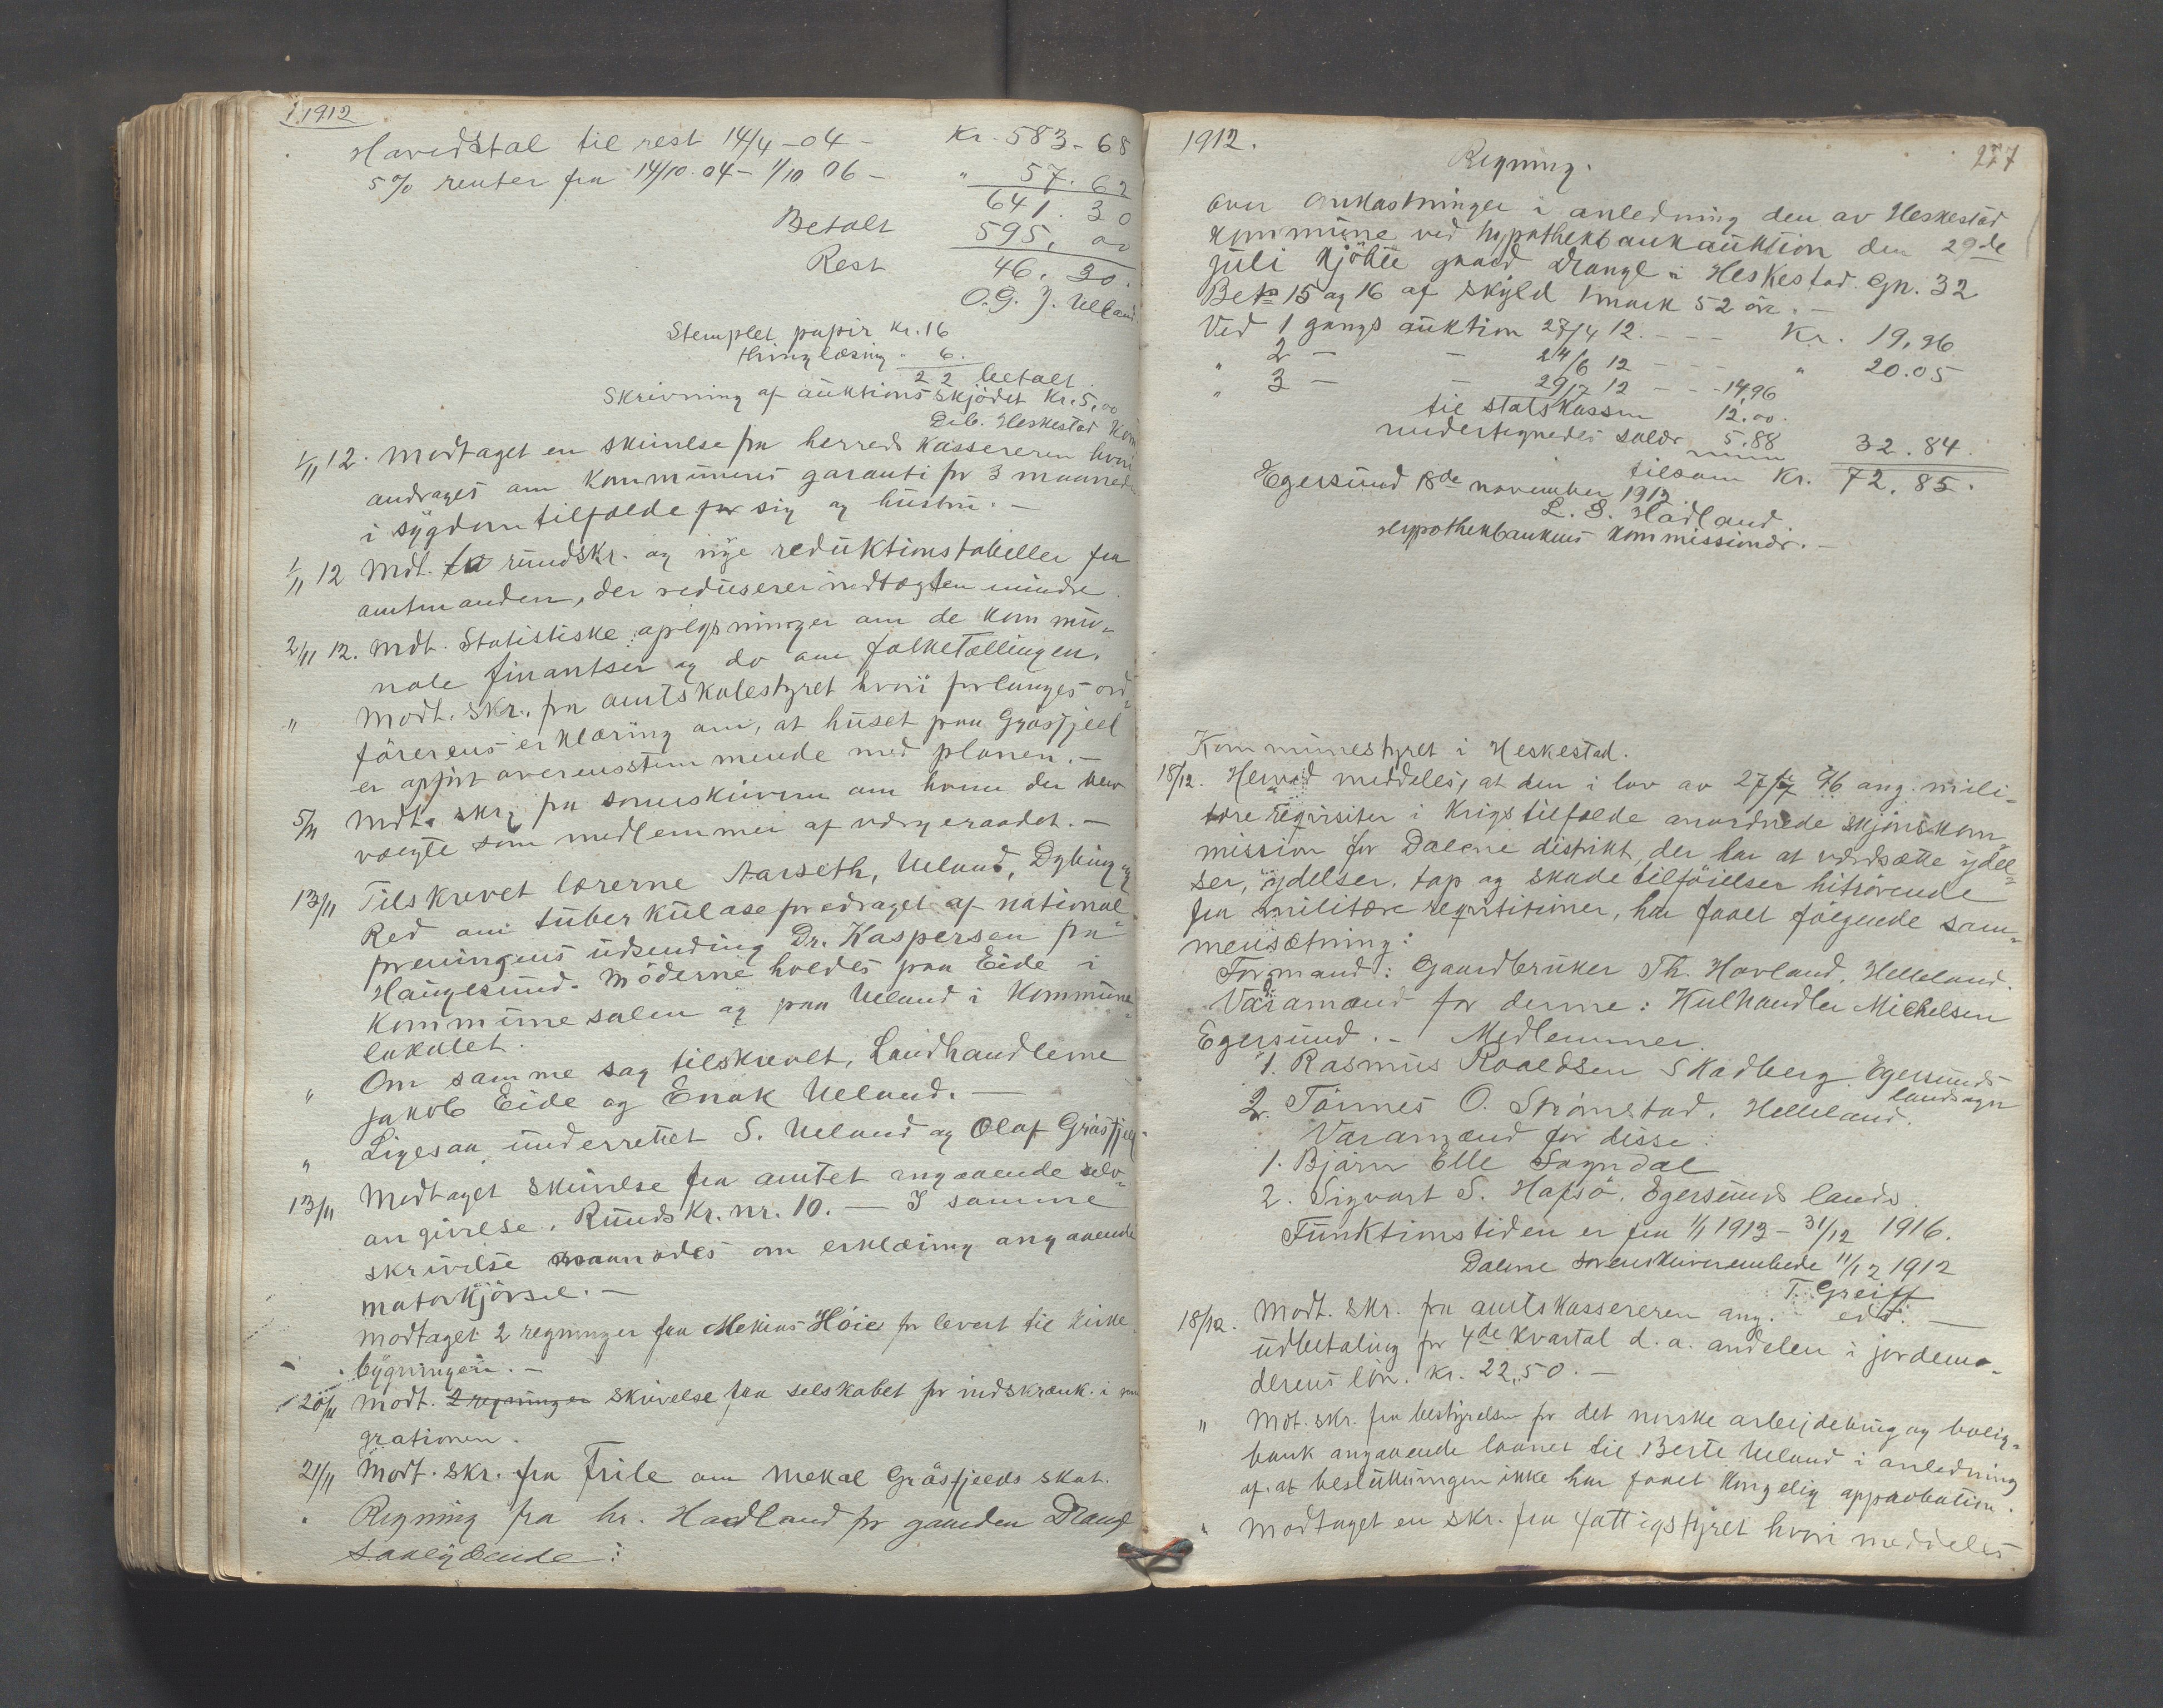 1912
Havedstal til rest 14/4-04- Kr. 583-68
5% renter fra 14/10.04- 1/10 06- " 57.62
641.30
Betalt 595,00
Rest 46.30.
O.G.J. Ueland
Stemplet papir Kr. 16
thinglæsing " 6.
22 betalt.
Skrivning af auktionsskjödet Kr. 5,00
Deb. Heskestad Kom
1/11 12. Modtaget en skrivelse fra herredskassereren hvori
andrages om kommunens garanti for 3 maaneder
i sygdomtilfælde for sig og hustru.-
1/11 12 Mdt. rundskr. og nye reduktionstabeller fra
amtmanden, der reduserer indtægten mindre.
2/11 12. Mdt. Statistiske oplysninger om de kommu-
nale finantser og do om folketællingen.
" Modt. skr. fra amtskolestyret hvori forlanges ord-
førerens erklæring om, at huset paa Gyasfjeel
er opført overensstemmende med planen.-
5/11 Mdt. skr. fra sorenskriveren om hvem der blev
valgte som medlemmer af værgeraadet.-
13/11 Tilskrevet lærerne Aarseth, Ueland, Dybing og
Red om tuberkulose foredraget af national-
foreningens udsending Dr. Kaspersen fra
Haugesund. Möderne holdes paa Eide i
Kommunesalen og paa Ueland i kommune-
lokalet.
" Om samme sag tilskrevet, Landhandlerne
Jakob Eide og Enok Ueland.-
" Ligesaa underrettet S. Ueland og Olaf Gräsfjell.
13/11 Modtaget skrivelse fra amtet angaaende selv-
angivelse. Rundskr. nr. 10. - I samme
skrivelse anmodes om erklæring angaaende
motorkjörsel.-
Modtaget 2 regninger fra Mekias Höie for levert til kirke
bygningen.-
20/11 Modt. 2 regninger skrivelse fra selskabet for indskrænk. i emi
grationen.
21/11 Modt. skr. fra Frile om Mekal Gräsfjeeds skat.
Regning fra hr. Hadland for gaarden Drangl
saalydende:
1912. 277
Regning.
over omkostninger i anledning den av Heskestad
kommune ved hypothekbankauktion den 29de
juli kjöbte gaard Drangl i Heskestad. Gn. 32
Bet 15 og 16 af skyld 1 mark 52 öre.-
Ved 1 gangs auktion 27/4 12.--- Kr. 19,96
" 2 - - 24/6 12 --- " 20.05
" 3 - - 29/7 12 --- 14,96
til statskassen 12.00.
undertegnedes salær 5.88 32.84.
tilsam Kr. 72.85.
Egersund 18de november 1912.
L. S. Hadland.
Hypothekbankens kommissionær.-
Kommunestyret i Heskestad.
18/12. Herved meddeles, at den i lov av 27/7 96 ang. mili-
tære reqvisiter i krigstilfælde anordnede skjönskom-
mission for Dalene distrikt, der har at værdsætte ydel-
ser, ydelser. tap og skade tilföielser hitrörende
fra militære reqvititioner, har faaet følgende sam-
mensætning:
Formand: Gaardbruker Th. Hovland, Helleland.
Varamand for denne: Kulhandler Michelsen
Egersund.- Medlemmer.
1. Rasmus Roaldsen Skadberg. Egersunds
landsogn
2. Tönnes O. Skromstad. Helleland.
Varamænd for disse:
1. Bjarn Elle Sogndal
2. Sigvart S. Hafsö. Egersunds lands.
Funktionstiden er fra 1/1 1913 - 31/12 1916.
Dalene sorenskriverembede 11/12 1912
T. Greiff
edt:
18/12. Modt. skr. fra amtskassereren ang. -
udbetaling for 4de kvartal d. a. andelen i jordemo-
derens lön. Kr. 22,50.-
" Mdt. skr. fra bestyrelsen for det norske arbeidebrug og bolig-
bank angaaende laanet til Berte Ueland i anledning
af. at beslutningen ikke har faaet kongelig approbation.
" Modtaget en skr. fra fattigstyret hvori meddeles